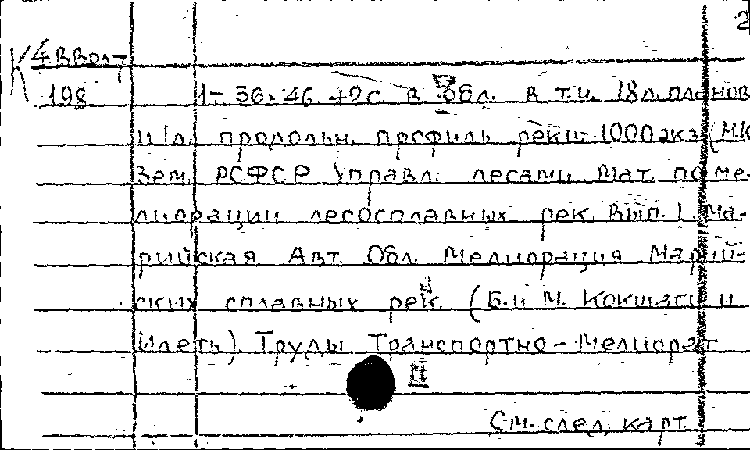 2
К4 ВВолт
198 Л-36.46.49с. в обл. в т.ч. 18 л. планов
и 1 л. продольн. профиль реки. 1000 экз. (НК
Зем. РСФСР Управл. лесами. Мат. по ме-
лиорации лесосплавных рек. Вып. 1. Ма-
рийская Авт. Обл. Мелиорация Марий-
ских сплавных рек. (Б. и М. Кокшаги и
Илеть). Труды Транспортно-мелиорат
См. след. карт.